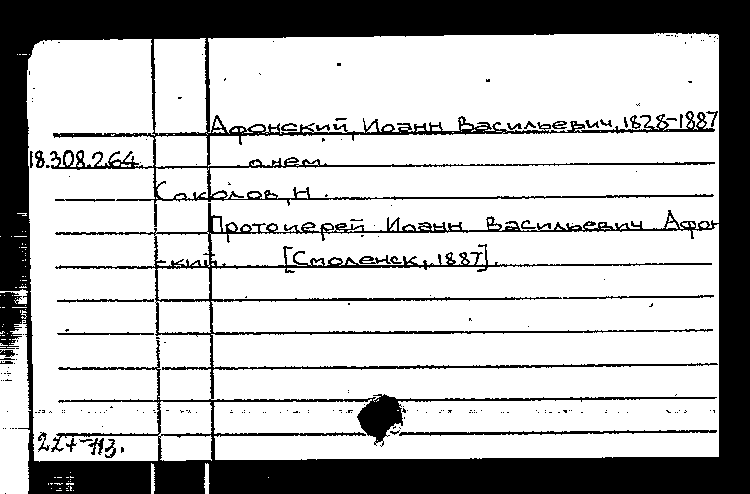 Афонский, Иоанн Васильевич, 1828-1887
18.308.2.64 о нем.
Соколов, Н.
Протоиерей Иоанн Васильевич Афон
-кий. [Смоленск, 1887].
227-713.